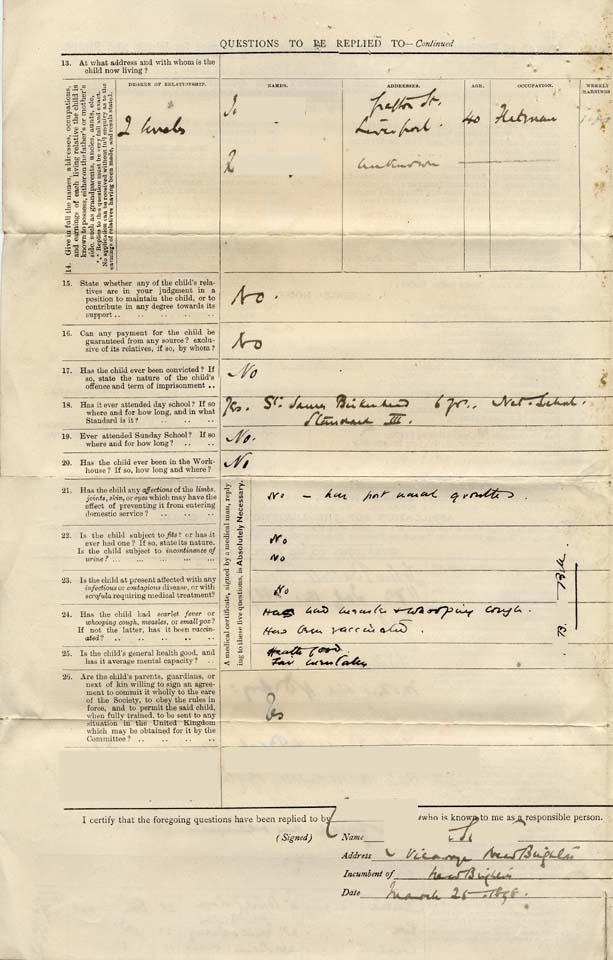 QUESTIONS TO BE REPLIED TO—Continued
13. At what address and with whom is the
child now living?
14. Give in full the names, addresses, occupations,
and earnings of each living relative the child is
known to possess, either on the father's or mother's
side, such as grandparents, uncles, aunts, etc.
*** Replies to this question must be very full and exact.
No application can be received without full enquiry as to the
earnings of relatives having been made, and result stated.
DEGREE OF RELATIONSHIP. NAMES. ADDRESSES. AGE. OCCUPATION. WEEKLY
EARNINGS
Grafton St.
2 uncles 1 Liverpool. 40
2 unknown
15. State whether any of the child's rela-
tives are in your judgment in a
position to maintain the child, or to
contribute in any degree towards its
support .. .. .. .. ..
No.
16. Can any payment for the child be
guaranteed from any source? exclu-
sive of its relatives, if so, by whom?
No
17. Has the child ever been convicted? If
so, state the nature of the child's
offence and term of imprisonment ..
No
18. Has it ever attended day school? If so
where and for how long, and in what
Standard is it? .. .. .. ..
Yes. St. James Birkenhead 6 yrs. Nat. School.
Standard III.
19. Ever attended Sunday School? If so
where and for how long? .. ..
No.
20. Has the child ever been in the Work-
house? If so, how long and where?
No
A medical certificate, signed by a medical man, reply
ing to these five questions, is Absolutely Necessary.
21. Has the child any affections of the limbs,
joints, skin, or eyes which may have the
effect of preventing it from entering
domestic service? .. .. ..
No – has post nasal growths.
22. Is the child subject to fits? or has it
ever had one? If so, state its nature.
Is the child subject to incontinence of
urine? .. .. .. .. ..
No
No
23. Is the child at present affected with any
infectious or contagious disease, or with
scrofula requiring medical treatment?
No
24. Has the child had scarlet fever or
whooping cough, measles, or small pox?
If not the latter, has it been vaccin-
ated? .. .. .. .. .. ..
Has had measles & whooping cough.
Has been vaccinated.
25. Is the child's general health good, and
has it average mental capacity? ..
Health good.
Fair mental
26. Are the child's parents, guardians, or
next of kin willing to sign an agree-
ment to commit it wholly to the care
of the Society, to obey the rules in
force, and to permit the said child,
when fully trained, to be sent to any
situation in the United Kingdom
which may be obtained for it by the
Committee? .. .. .. ..
Yes
I certify that the foregoing questions have been replied to by who is known to me as a responsible person.
(Signed) Name
Address Vicarage New Brighton
Incumbent of New Brighton
Date March 25 . 1898.